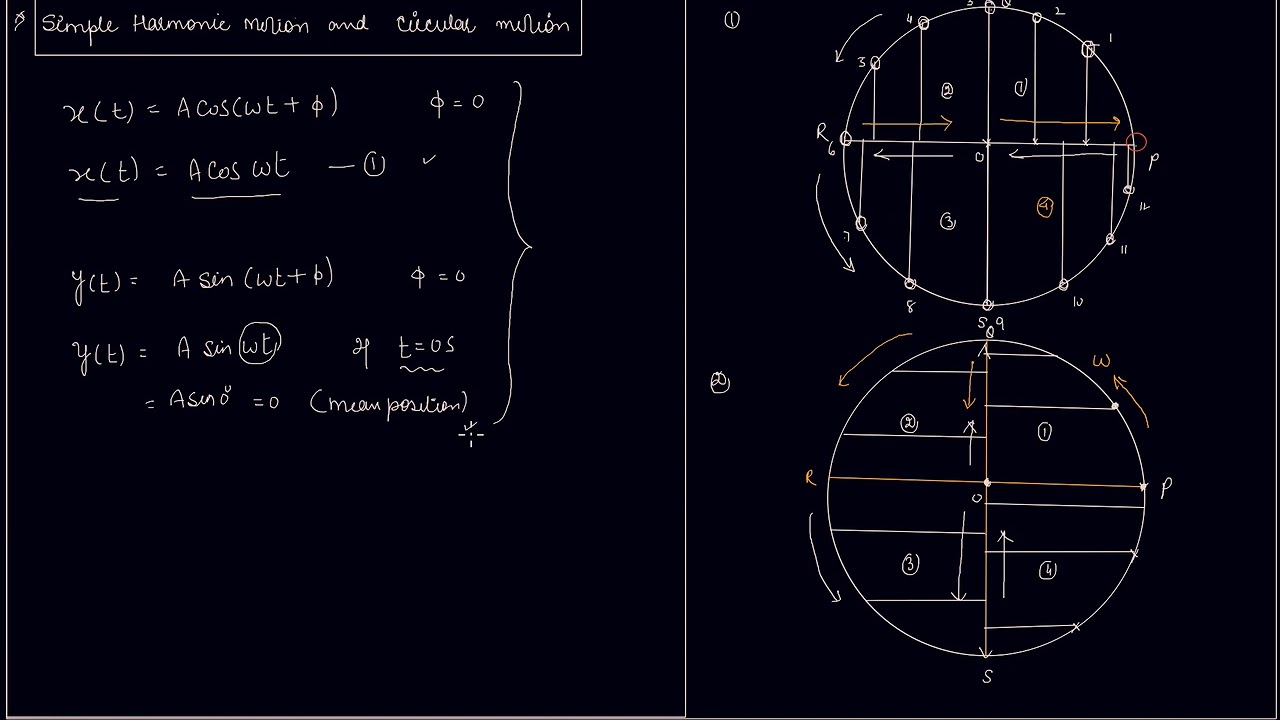 Simple Harmonic motion and circular motion
x(t) = A cos(ωt + ϕ) ϕ = 0
x(t) = A cos ωt — ① ✓
y(t) = A sin (ωt + ϕ) ϕ = 0
y(t) = A sin ωt if t = 0s
= A sin 0° = 0 (mean position)
①
Q
2
4
1
3
②
①
R
6
O
P
12
③
④
7
11
8
10
S
9
②
Q
ω
②
①
R
O
P
③
④
S